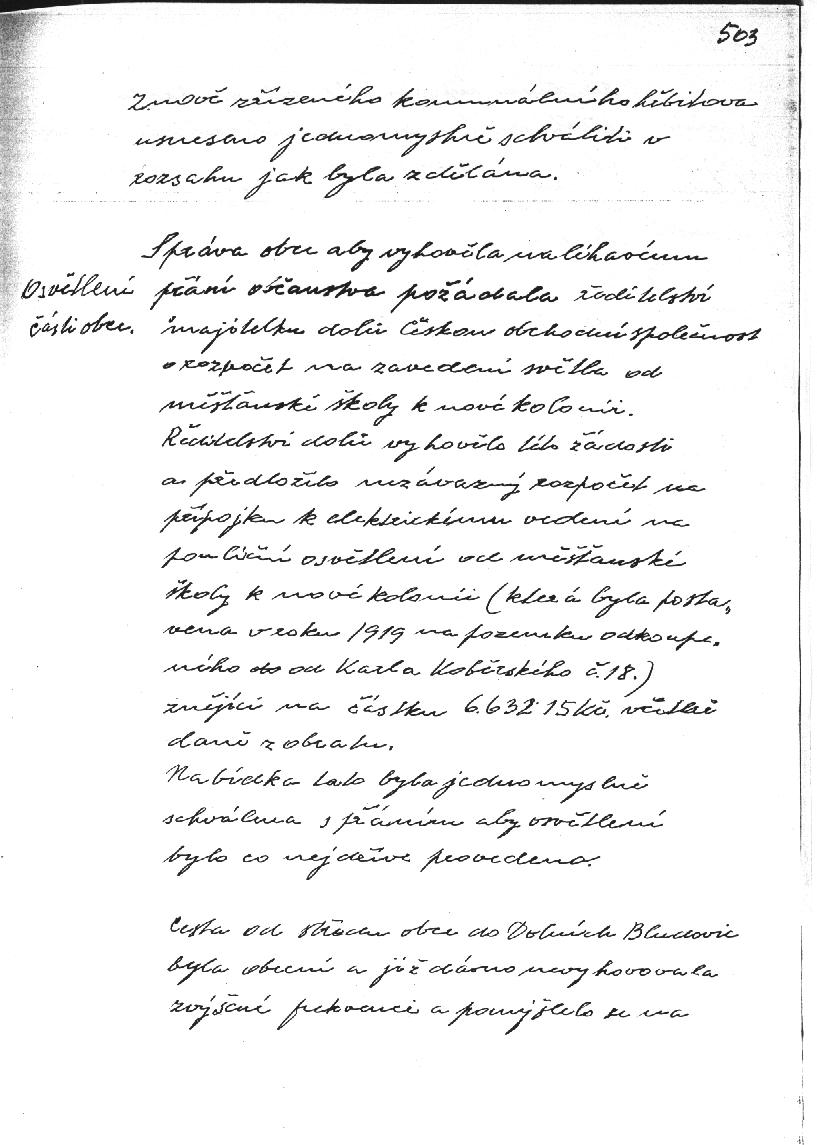 503
znově zřízeného komunálního hřbitova
usneseno jednomyslně schváliti v
rozsahu jak byla zdělána.
Správa obce aby vyhověla naléhavému
Osvětlení
části obce.
přání občanstva požádala ředitelství
majitelku dolů Českou obchodní společnost
o rozpočet na zavedení světla od
měšťanské školy k nové kolonii.
Ředitelství dolů vyhovělo této žádosti
a předložilo nezávazný rozpočet na
přípojku k elektrickému vedení na
pouliční osvětlení od měšťanské
školy k nové kolonii (která byla posta„
vena v roku 1919 na pozemku odkoupe„
ného do od Karla Kobĕrského č.18.)
znějící na částku 6.632.15 Kč. včetně
daně z obratu.
Nabídka tato byla jednomyslně
schválena s přáním aby osvětlení
bylo co nejdříve provedeno.
Cesta od středu obce do Dolních Bludovic
byla obecní a již dávno nevyhovovala
zvýšené frekvenci a pomýšlelo se na